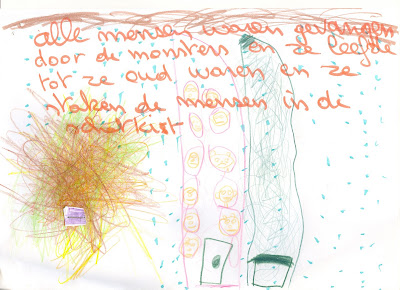 alle mensen waren gevangen
door de monsters en ze leefde
tot ze oud waren en ze
staken de mensen in de
schatkist